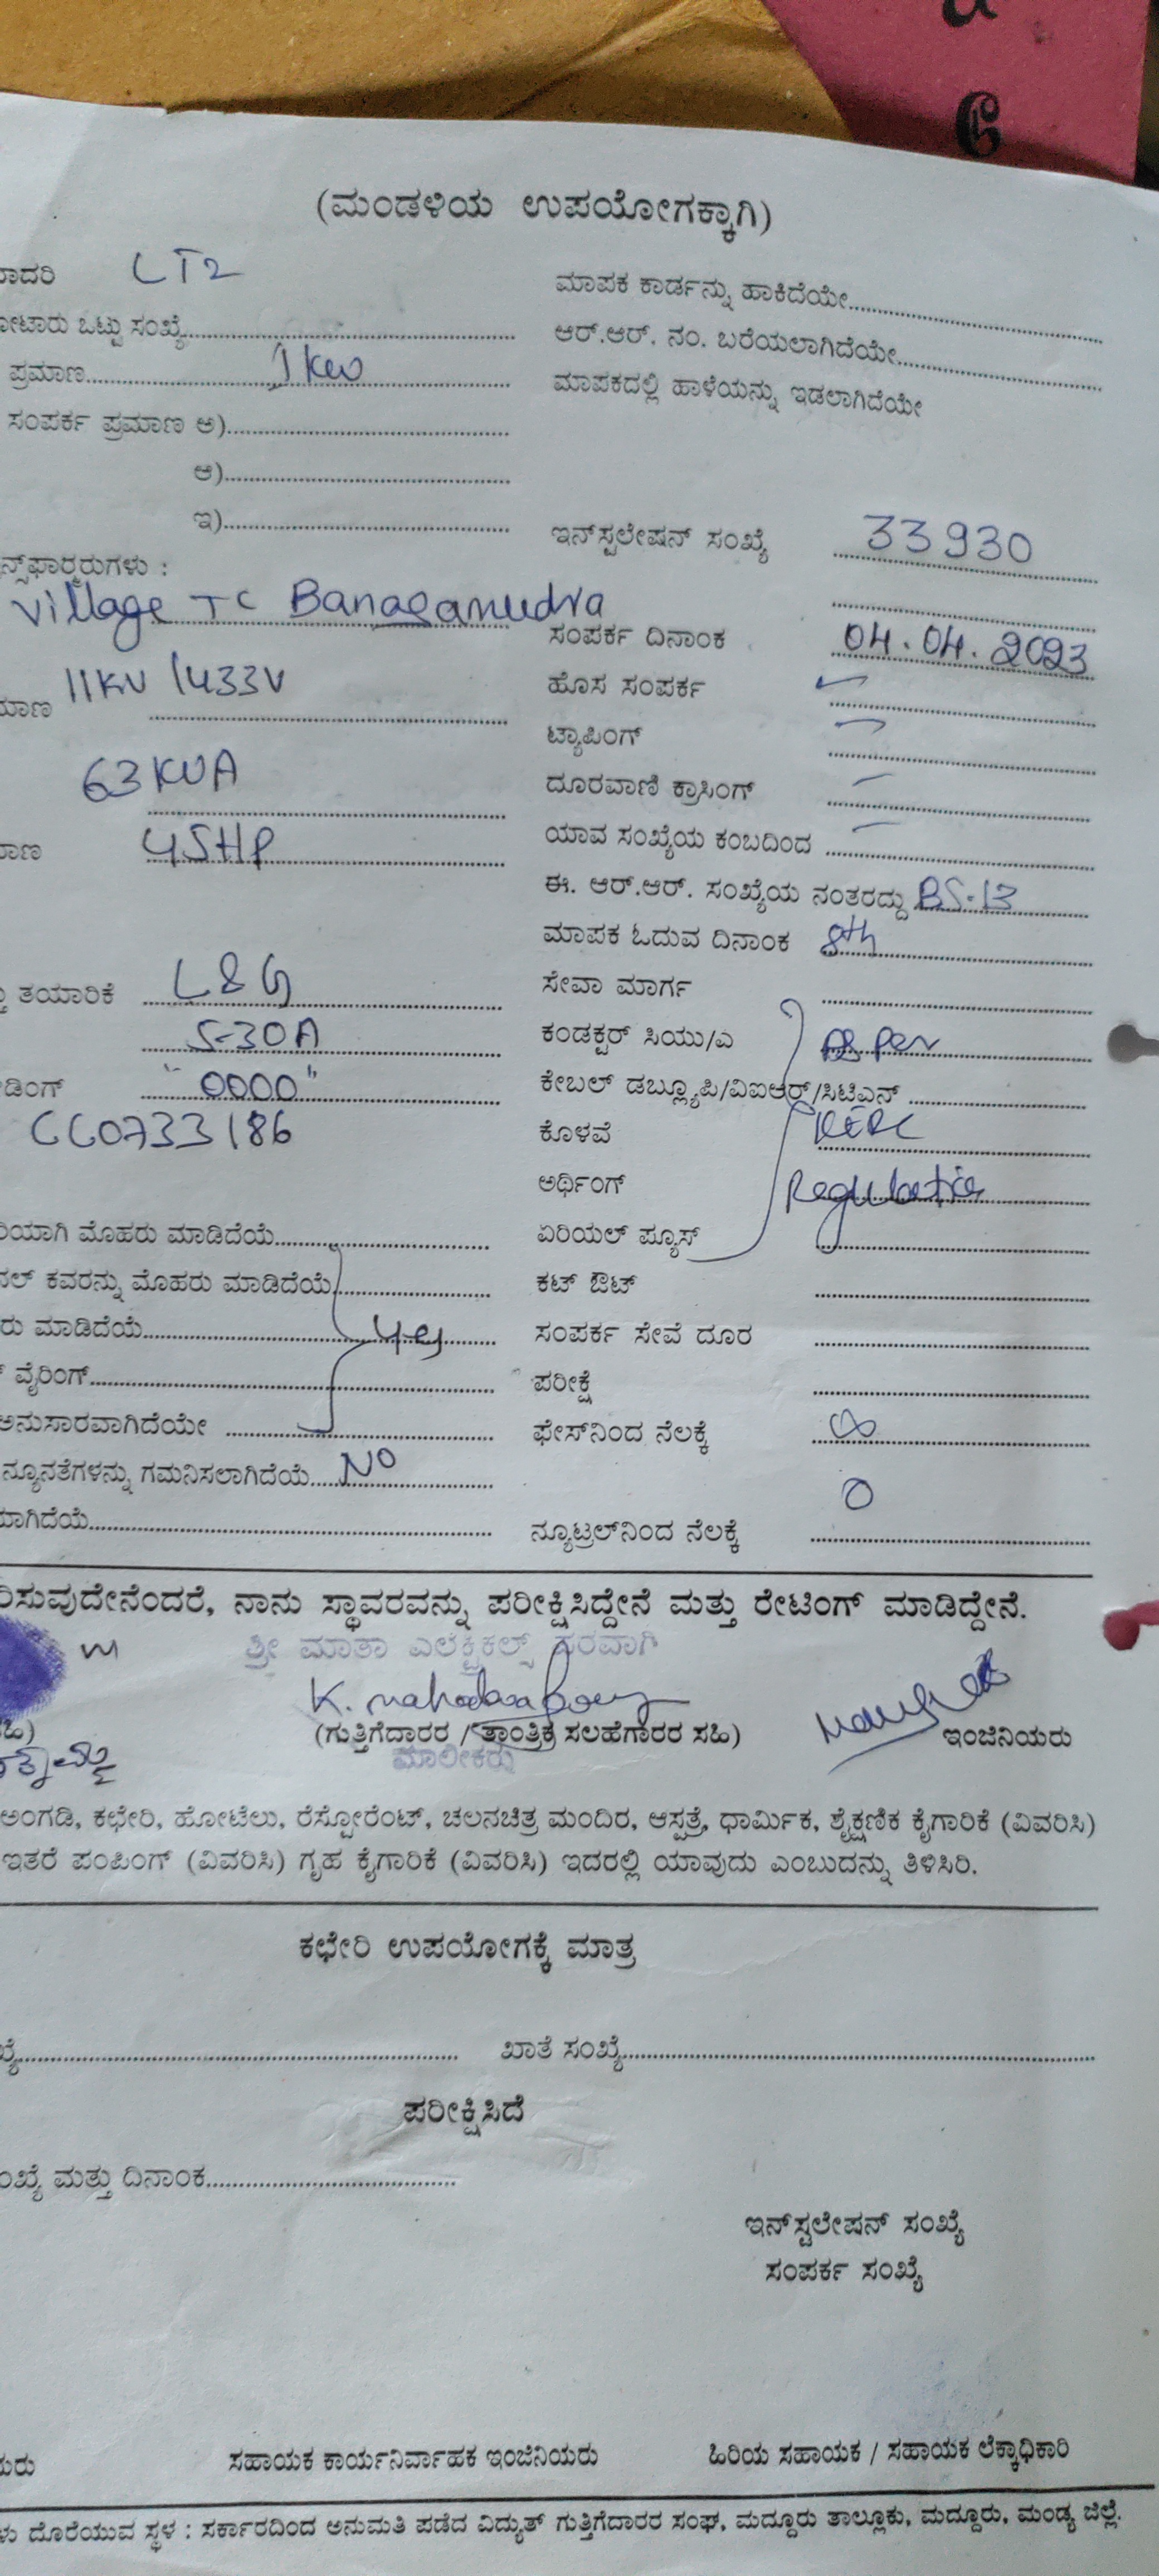 (ಮಂಡಳಿಯ ಉಪಯೋಗಕ್ಕಾಗಿ)
ಾದರಿ LT2 ಮಾಪಕ ಕಾರ್ಡನ್ನು ಹಾಕಿದೆಯೇ
ೋಟಾರು ಒಟ್ಟು ಸಂಖ್ಯೆ ಆರ್.ಆರ್. ನಂ. ಬರೆಯಲಾಗಿದೆಯೇ
ಪ್ರಮಾಣ 1 kw ಮಾಪಕದಲ್ಲಿ ಹಾಳೆಯನ್ನು ಇಡಲಾಗಿದೆಯೇ
ಸಂಪರ್ಕ ಪ್ರಮಾಣ ಅ)
ಆ)
ಇ) ಇನ್‌ಸ್ಟಲೇಷನ್ ಸಂಖ್ಯೆ 33930
ನ್ಸ್‌ಫಾರ್ಮರುಗಳು :
Village TC Banasamudra ಸಂಪರ್ಕ ದಿನಾಂಕ 04.04.2023
ಮಾಣ 11KV /433V ಹೊಸ ಸಂಪರ್ಕ ✓
ಟ್ಯಾಪಿಂಗ್ —
63 KVA ದೂರವಾಣಿ ಕ್ರಾಸಿಂಗ್ —
ಮಾಣ 45HP ಯಾವ ಸಂಖ್ಯೆಯ ಕಂಬದಿಂದ —
ಈ. ಆರ್.ಆರ್. ಸಂಖ್ಯೆಯ ನಂತರದ್ದು BS-13
ಮಾಪಕ ಓದುವ ದಿನಾಂಕ 8th
ತು ತಯಾರಿಕೆ L&G ಸೇವಾ ಮಾರ್ಗ
5-30A ಕಂಡಕ್ಟರ್ ಸಿಯು/ಎ As per
ಡಿಂಗ್ "0000" ಕೇಬಲ್ ಡಬ್ಲ್ಯೂಪಿ/ವಿಐಆರ್/ಸಿಟಿಎನ್
CC0733186 ಕೊಳವೆ KERC
ಅರ್ಥಿಂಗ್ Regulation
ರಿಯಾಗಿ ಮೊಹರು ಮಾಡಿದೆಯೆ ಏರಿಯಲ್ ಫ್ಯೂಸ್
ನಲ್ ಕವರನ್ನು ಮೊಹರು ಮಾಡಿದೆಯೆ ಕಟ್ ಔಟ್
ರು ಮಾಡಿದೆಯೆ Yes ಸಂಪರ್ಕ ಸೇವೆ ದೂರ
ವೈರಿಂಗ್ ಪರೀಕ್ಷೆ
ಅನುಸಾರವಾಗಿದೆಯೇ ಫೇಸ್‌ನಿಂದ ನೆಲಕ್ಕೆ ∞
ನ್ಯೂನತೆಗಳನ್ನು ಗಮನಿಸಲಾಗಿದೆಯೆ NO
ಾಗಿದೆಯೆ ನ್ಯೂಟ್ರಲ್‌ನಿಂದ ನೆಲಕ್ಕೆ 0
ರಿಸುವುದೇನೆಂದರೆ, ನಾನು ಸ್ಥಾವರವನ್ನು ಪರೀಕ್ಷಿಸಿದ್ದೇನೆ ಮತ್ತು ರೇಟಿಂಗ್ ಮಾಡಿದ್ದೇನೆ.
ಶ್ರೀ ಮಾತಾ ಎಲೆಕ್ಟ್ರಿಕಲ್ಸ್ ಪರವಾಗಿ
ಹಿ) (ಗುತ್ತಿಗೆದಾರರ / ತಾಂತ್ರಿಕ ಸಲಹೆಗಾರರ ಸಹಿ) ಇಂಜಿನಿಯರು
ಮಾಲೀಕರು
ಅಂಗಡಿ, ಕಛೇರಿ, ಹೋಟೆಲು, ರೆಸ್ಟೋರೆಂಟ್, ಚಲನಚಿತ್ರ ಮಂದಿರ, ಆಸ್ಪತ್ರೆ, ಧಾರ್ಮಿಕ, ಶೈಕ್ಷಣಿಕ ಕೈಗಾರಿಕೆ (ವಿವರಿಸಿ)
ಇತರೆ ಪಂಪಿಂಗ್ (ವಿವರಿಸಿ) ಗೃಹ ಕೈಗಾರಿಕೆ (ವಿವರಿಸಿ) ಇದರಲ್ಲಿ ಯಾವುದು ಎಂಬುದನ್ನು ತಿಳಿಸಿರಿ.
ಕಛೇರಿ ಉಪಯೋಗಕ್ಕೆ ಮಾತ್ರ
ಖ್ಯೆ ಖಾತೆ ಸಂಖ್ಯೆ
ಪರೀಕ್ಷಿಸಿದೆ
ಂಖ್ಯೆ ಮತ್ತು ದಿನಾಂಕ
ಇನ್‌ಸ್ಟಲೇಷನ್ ಸಂಖ್ಯೆ
ಸಂಪರ್ಕ ಸಂಖ್ಯೆ
ಯರು ಸಹಾಯಕ ಕಾರ್ಯನಿರ್ವಾಹಕ ಇಂಜಿನಿಯರು ಹಿರಿಯ ಸಹಾಯಕ / ಸಹಾಯಕ ಲೆಕ್ಕಾಧಿಕಾರಿ
ಳು ದೊರೆಯುವ ಸ್ಥಳ : ಸರ್ಕಾರದಿಂದ ಅನುಮತಿ ಪಡೆದ ವಿದ್ಯುತ್ ಗುತ್ತಿಗೆದಾರರ ಸಂಘ, ಮದ್ದೂರು ತಾಲ್ಲೂಕು, ಮದ್ದೂರು, ಮಂಡ್ಯ ಜಿಲ್ಲೆ.